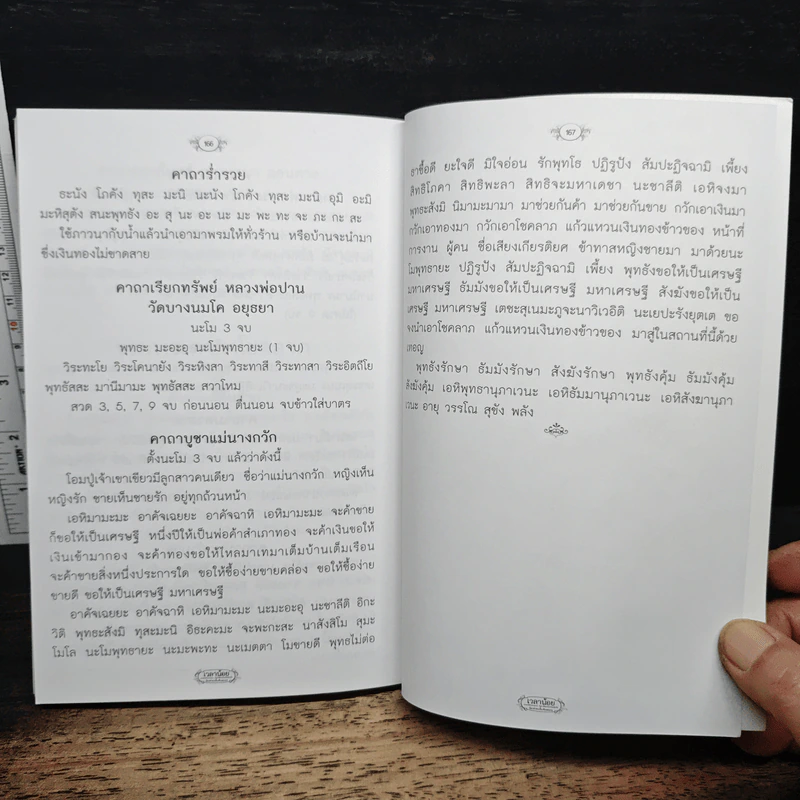 166
คาถาร่ำรวย
ธะนัง โภคัง ทุสะ มะนิ นะนัง โภคัง ทุสะ มะนิ อุมิ อะมิ
มะหิสุตัง สนะพุทธัง อะ สุ นะ อะ นะ มะ พะ ทะ จะ ภะ กะ สะ
ใช้ภาวนากับน้ำแล้วนำเอามาพรมให้ทั่วร้าน หรือบ้านจะนำมา
ซึ่งเงินทองไม่ขาดสาย
คาถาเรียกทรัพย์ หลวงพ่อปาน
วัดบางนมโค อยุธยา
นะโม 3 จบ
พุทธะ มะอะอุ นะโมพุทธายะ (1 จบ)
วิระทะโย วิระโคนายัง วิระหิงสา วิระทาสี วิระทาสา วิระอิตถีโย
พุทธัสสะ มานีมามะ พุทธัสสะ สวาโหม
สวด 3, 5, 7, 9 จบ ก่อนนอน ตื่นนอน จบข้าวใส่บาตร
คาถาบูชาแม่นางกวัก
ตั้งนะโม 3 จบ แล้วว่าดังนี้
โอมปู่เจ้าเขาเขียวมีลูกสาวคนเดียว ชื่อว่าแม่นางกวัก หญิงเห็น
หญิงรัก ชายเห็นชายรัก อยู่ทุกถ้วนหน้า
เอหิมามะมะ อาคัจเฉยยะ อาคัจฉาหิ เอหิมามะมะ จะค้าขาย
ก็ขอให้เป็นเศรษฐี หนึ่งปีให้เป็นพ่อค้าสำเภาทอง จะค้าเงินขอให้
เงินเข้ามากอง จะค้าทองขอให้ไหลมาเทมาเต็มบ้านเต็มเรือน
จะค้าขายสิ่งหนึ่งประการใด ขอให้ซื้อง่ายขายคล่อง ขอให้ซื้อง่าย
ขายดี ขอให้เป็นเศรษฐี มหาเศรษฐี
อาคัจเฉยยะ อาคัจฉาหิ เอหิมามะมะ นะมะอะอุ นะชาลีติ อิกะ
วิติ พุทธะสังมิ ทุสะมะนิ อิธะคะมะ จะพะกะสะ นาสังสิโม สุมะ
โมโล นะโมพุทธายะ นะมะพะทะ นะเมตตา โมขายดี พุทธไม่ต่อ
เวลาน้อย
167
ธาซื้อดี ยะใจดี มิใจอ่อน รักพุทโธ ปฏิรูปัง สัมปะฏิจฉามิ เพี้ยง
สิทธิโภคา สิทธิพะลา สิทธิจะมหาเดชา นะชาลีติ เอหิจงมา
พุทธะสังมิ นิมามะมามา มาช่วยกันค้า มาช่วยกันขาย กวักเอาเงินมา
กวักเอาทองมา กวักเอาโชคลาภ แก้วแหวนเงินทองข้าวของ หน้าที่
การงาน ผู้คน ชื่อเสียงเกียรติยศ ข้าทาสหญิงชายมา มาด้วยนะ
โมพุทธายะ ปฏิรูปัง สัมปะฏิจฉามิ เพี้ยง พุทธังขอให้เป็นเศรษฐี
มหาเศรษฐี ธัมมังขอให้เป็นเศรษฐี มหาเศรษฐี สังฆังขอให้เป็น
เศรษฐี มหาเศรษฐี เตชะสุเนมะภูจะนาวิเวอิติ นะเยปะรังยุตเต ขอ
จงนำเอาโชคลาภ แก้วแหวนเงินทองข้าวของ มาสู่ในสถานที่นี้ด้วย
เทอญ
พุทธังรักษา ธัมมังรักษา สังฆังรักษา พุทธังคุ้ม ธัมมังคุ้ม
สังฆังคุ้ม เอหิพุทธานุภาเวนะ เอหิธัมมานุภาเวนะ เอหิสังฆานุภา
เวนะ อายุ วรรโณ สุขัง พลัง
เวลาน้อย